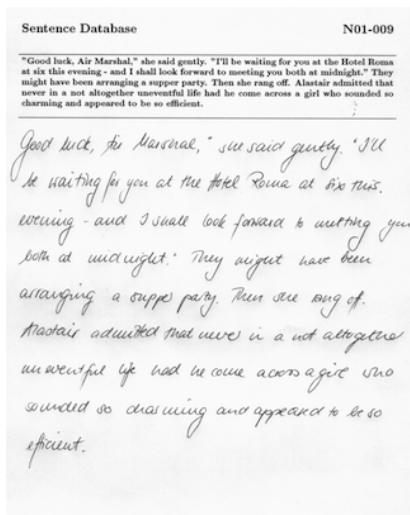 Sentence Database N01-009
"Good luck, Air Marshal," she said gently. "I'll be waiting for you at the Hotel Roma
at six this evening - and I shall look forward to meeting you both at midnight." They
might have been arranging a supper party. Then she rang off. Alastair admitted that
never in a not altogether uneventful life had he come across a girl who sounded so
charming and appeared to be so efficient.
Good luck, Air Marshal," she said gently. "I'll
be waiting for you at the Hotel Roma at six this.
evening - and I shall look forward to meeting you
both at midnight." They might have been
arranging a supper party. Then she rang off.
Alastair admitted that never in a not altogether
uneventful life had he come across a girl who
sounded so charming and appeared to be so
efficient.